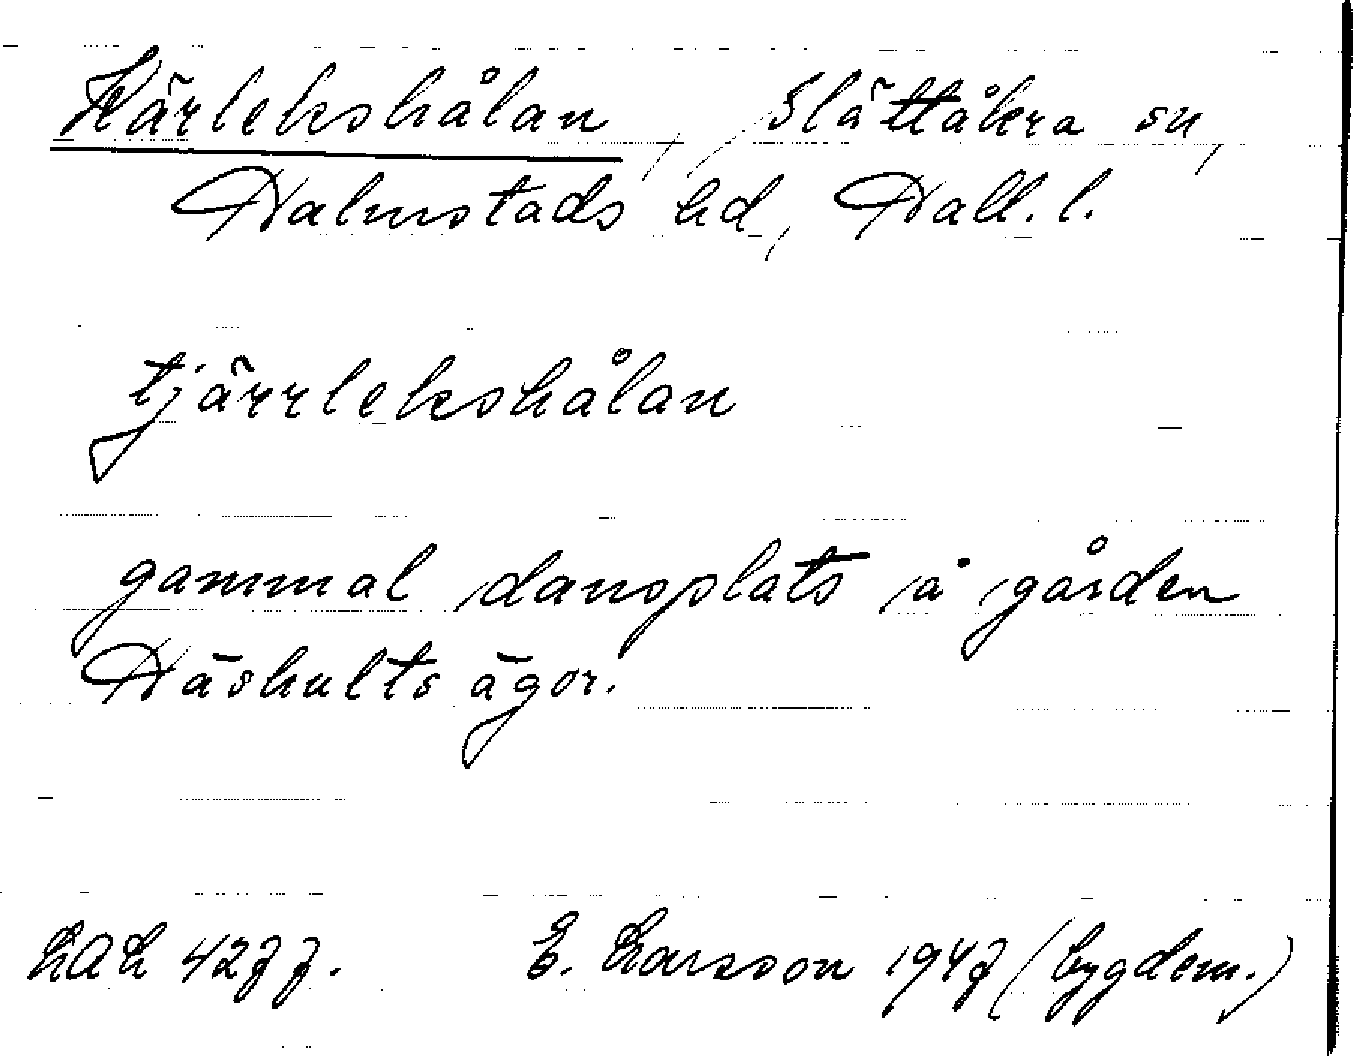 Kärlekshålan, Slättåkra sn,
Halmstads hd, Hall. l.
tjärrlekshålan
gammal dansplats å gården
Häshults ägor.
LAL 4277. E. Larsson 1947 (bygdem.)